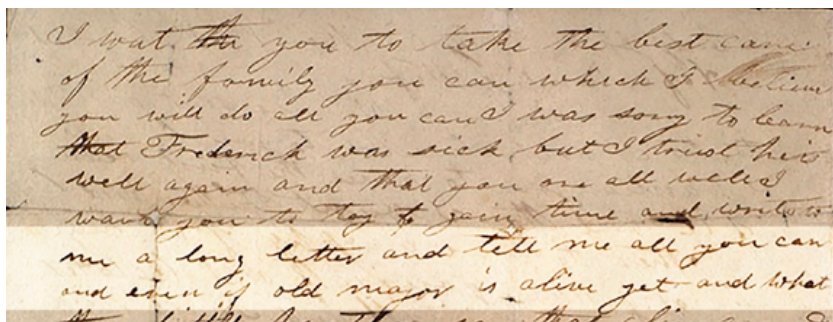 I wat the you to take the best care
of the family you can which I believe
you will do all you can I was sorry to learn
that Frederick was sick but I trust his
well again and that you are all well I
want you to try to gain time and write to
me a long letter and tell me all you can
and even if old major is alive yet and what